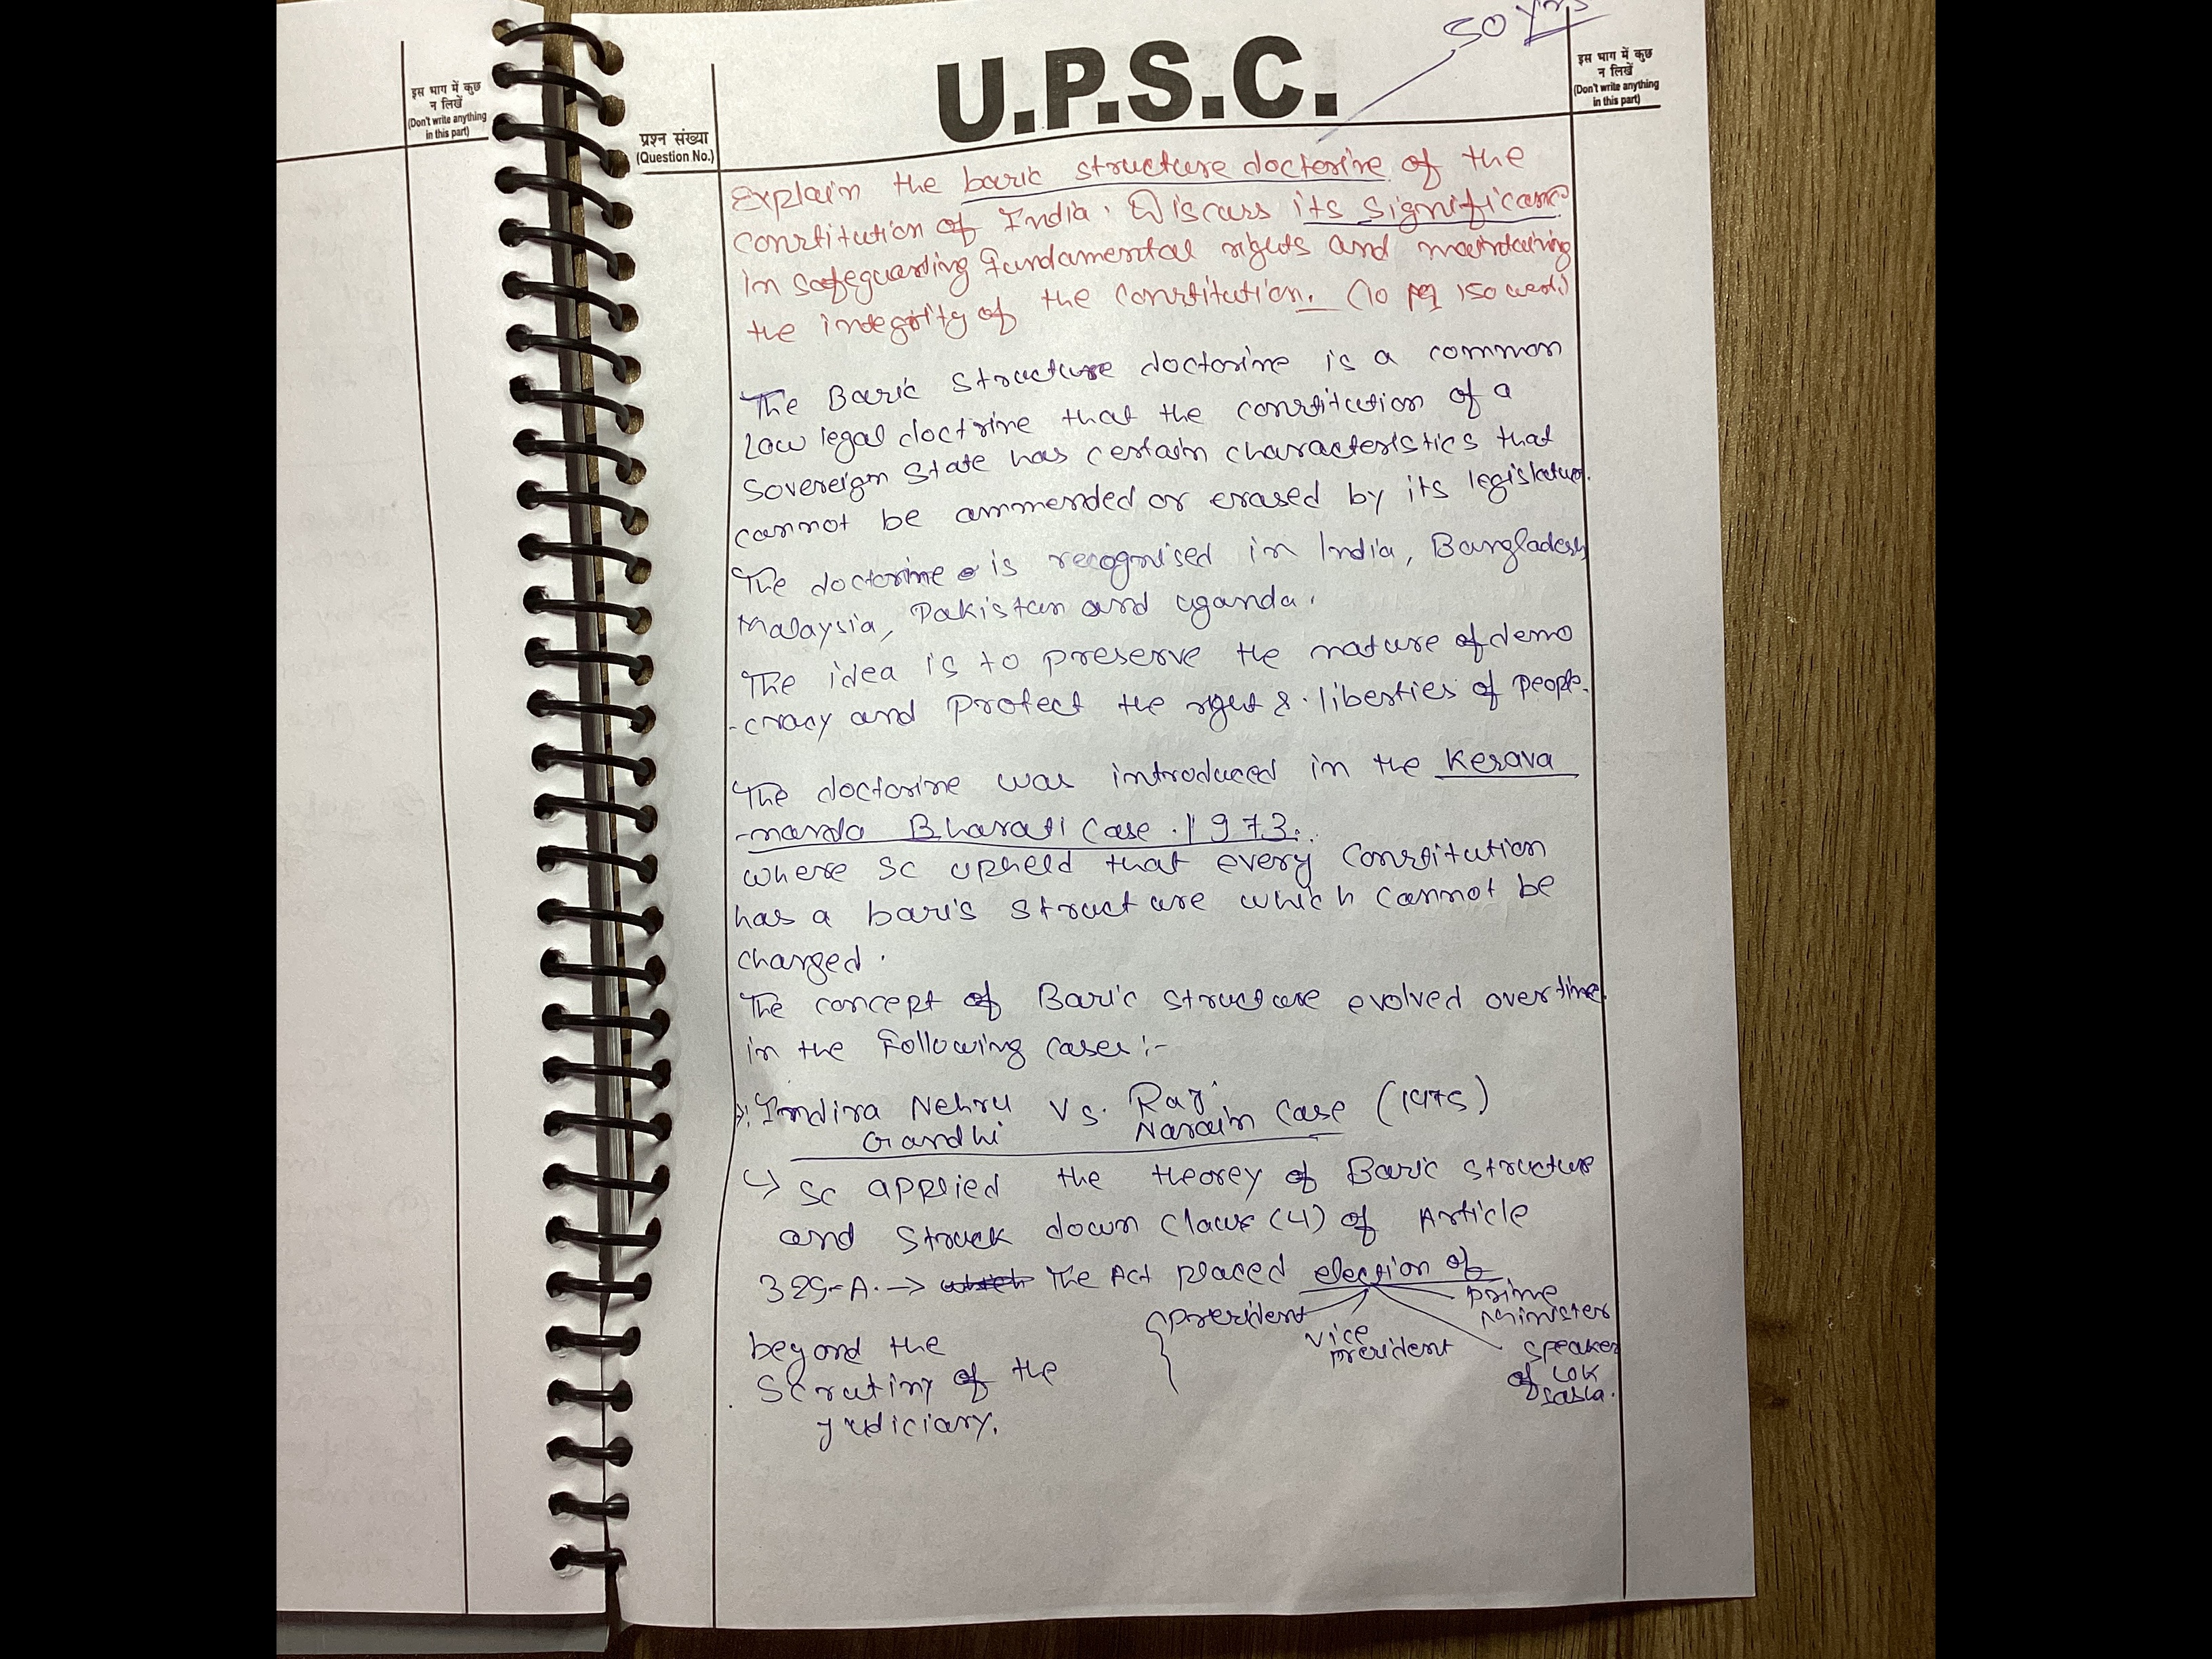 50 yrs
U.P.S.C.
इस भाग में कुछ
न लिखें
(Don't write anything
in this part)
प्रश्न संख्या
(Question No.)
इस भाग में कुछ
न लिखें
(Don't write anything
in this part)
Explain the basic structure doctorine of the
constitution of India. Discuss its significance
in safeguarding fundamental rights and maintaining
the integrity of the constitution. (10 150 words)
The Basic Structure doctorine is a common
law legal doctrine that the constitution of a
Sovereign State has certain characteristics that
cannot be ammended or erased by its legislature.
The doctorine is recognised in India, Bangladesh,
Malaysia, Pakistan and uganda.
The idea is to preserve the nature of demo
-cracy and Protect the right & liberties of people.
The doctorine was introduced in the Kesava
-nanda Bharati Case 1973.
where SC upheld that every Constitution
has a basis structure which cannot be
changed.
The concept of Basic structure evolved over time
in the following cases :-
Indira Nehru Gandhi Vs. Raj Narain Case (1975)
↳ SC applied the theorey of Basic Structure
and struck down Clause (4) of Article
329-A. → The Act placed election of
President
Vice President
Prime Minister
Speaker of Lok Sabha.
beyond the
scrutiny of the
judiciary.